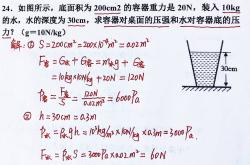 24. 如图所示，底面积为 200cm2 的容器重力是 20N，装入 10kg
的水，水的深度为 30cm，求容器对桌面的压强和水对容器底的压
力？（g=10N/kg）
解: ① S=200cm²=200×10⁻⁴m²=0.02m²
F容=G水+G容=m水g+G容
=10kg×10N/kg+20N=120N
P容=F容/S=120N/0.02m²=6000Pa
② h=30cm=0.3m
P水=ρ水gh=10³kg/m³×10N/kg×0.3m=3000Pa.
F水=P水S=3000Pa×0.02m²=60N
30cm